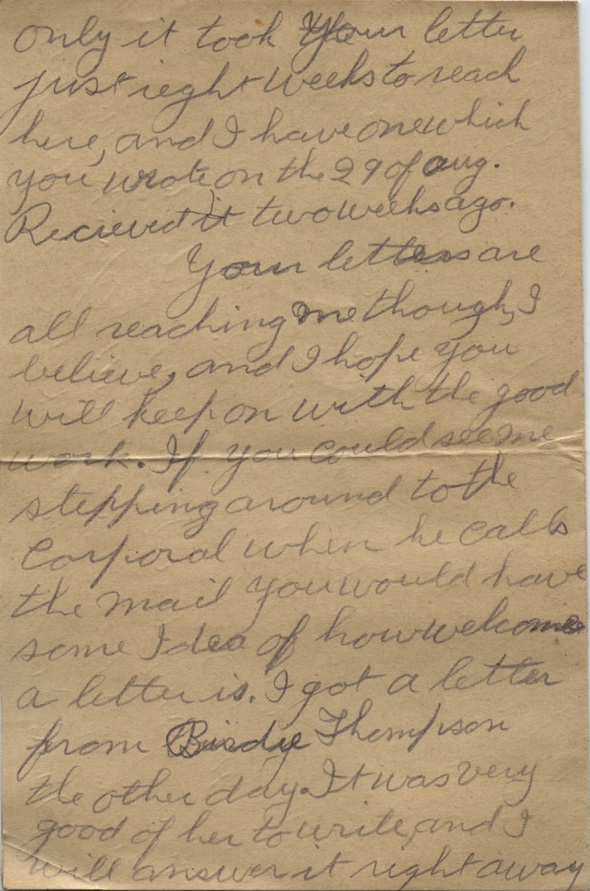 only it took Your letter
just ieght weeks to reach
here, and I have one which
you wrote on the 29 of aug.
Recieved it two weeks ago.
Your letters are
all reaching me though, I
believe, and I hope you
will keep on with the good
work. If you could see me
stepping around to the
Corporal when he calls
the mail you would have
some Idea of how welcome
a letter is. I got a letter
from Birdie Thompson
the other day. It was very
good of her to write, and I
will answer it right away